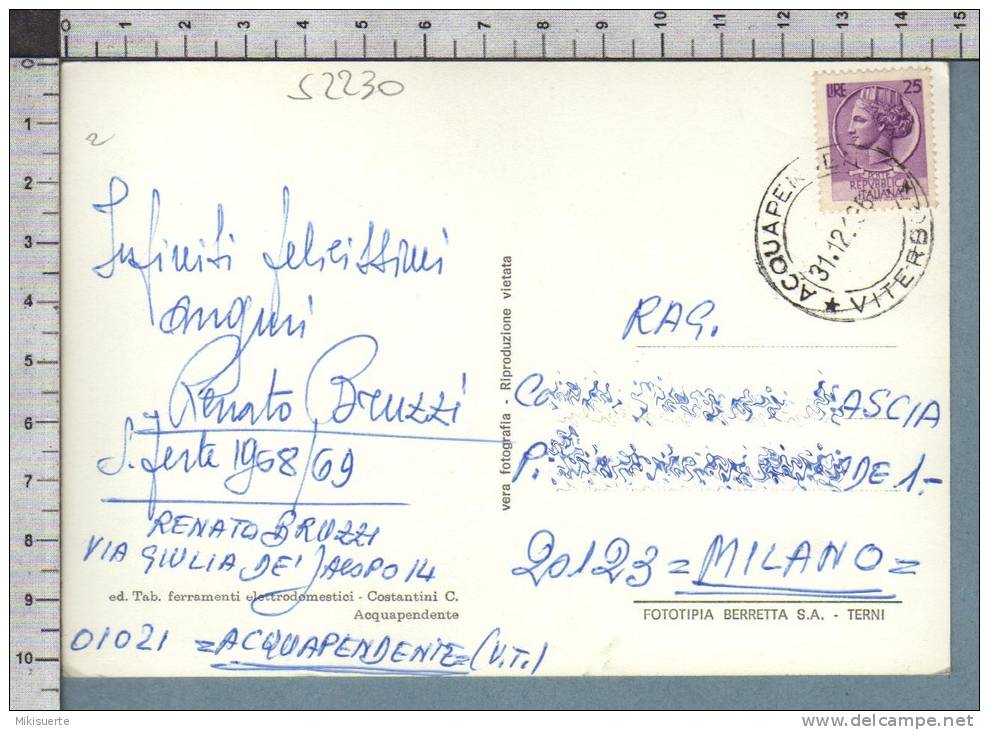 52230
LIRE 25
POSTE
REPVBBLICA
ITALIANA
ACQUAPENDENTE
31.12.196
VITERBO
Infiniti felicissimi
auguri
Renato Bruzzi
S. feste 1968/69
RENATO BRUZZI
VIA GIULIA DE' JACOPO 14
ed. Tab. ferramenti elettrodomestici - Costantini C.
Acquapendente
01021 = ACQUAPENDENTE = (V.T.)
vera fotografia - Riproduzione vietata
RAG.
ASCIA
DE 1.-
20123 = MILANO =
FOTOTIPIA BERRETTA S.A. - TERNI
0 1 2 3 4 5 6 7 8 9 10 11 12 13 14 15
0
1
2
3
4
5
6
7
8
9
10
Mikisuerte
www.delcampe.net